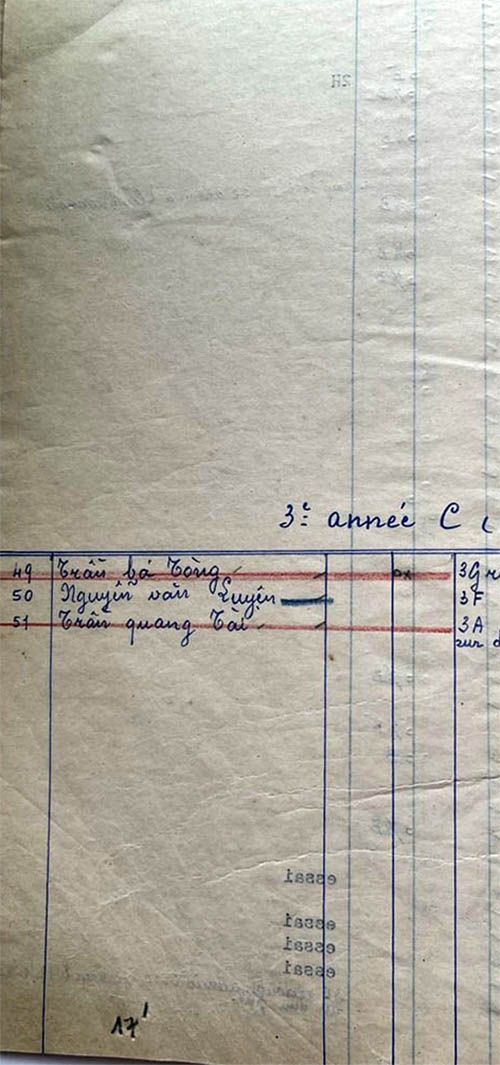 3e année C (
49 Trần bá Tòng ox 3G r
50 Nguyễn văn Luyện 3F
51 Trần quang Tài 3A
sur d
essai
essai
essai
essai
17'